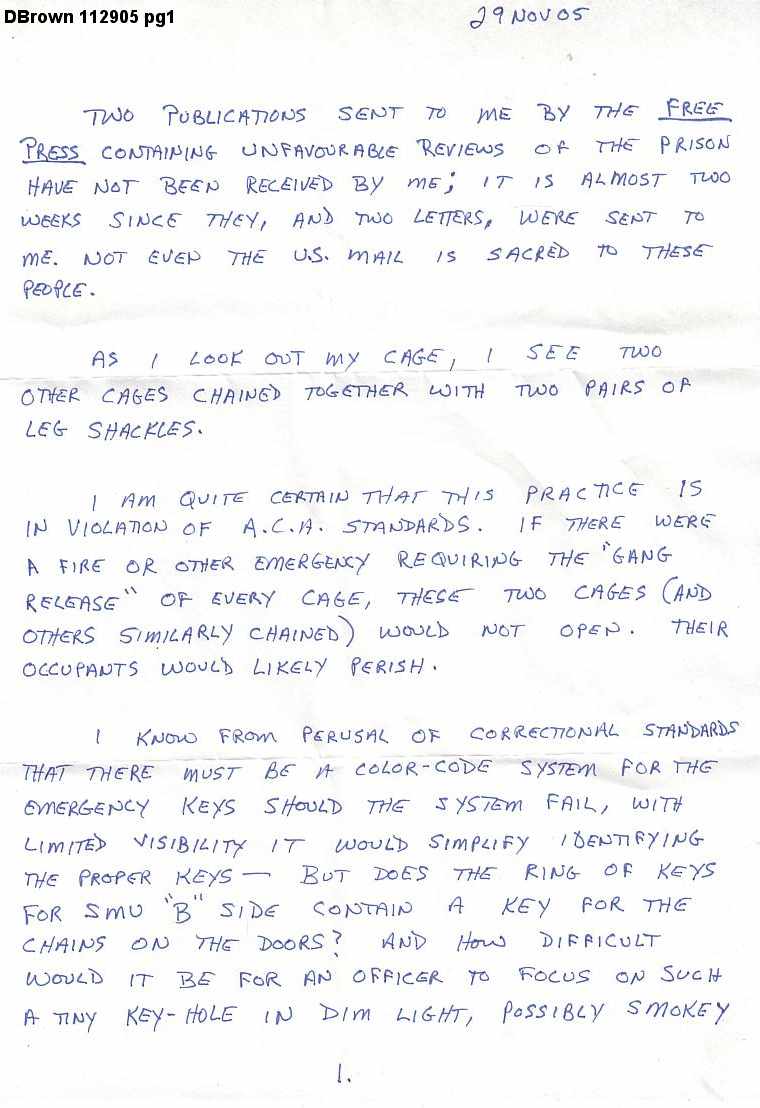 DBrown 112905 pg1
29 NOV 05
TWO PUBLICATIONS SENT TO ME BY THE FREE
PRESS CONTAINING UNFAVOURABLE REVIEWS OF THE PRISON
HAVE NOT BEEN RECEIVED BY ME; IT IS ALMOST TWO
WEEKS SINCE THEY, AND TWO LETTERS, WERE SENT TO
ME. NOT EVEN THE U.S. MAIL IS SACRED TO THESE
PEOPLE.
AS I LOOK OUT MY CAGE, I SEE TWO
OTHER CAGES CHAINED TOGETHER WITH TWO PAIRS OF
LEG SHACKLES.
I AM QUITE CERTAIN THAT THIS PRACTICE IS
IN VIOLATION OF A.C.A. STANDARDS. IF THERE WERE
A FIRE OR OTHER EMERGENCY REQUIRING THE "GANG
RELEASE" OF EVERY CAGE, THESE TWO CAGES (AND
OTHERS SIMILARLY CHAINED) WOULD NOT OPEN. THEIR
OCCUPANTS WOULD LIKELY PERISH.
I KNOW FROM PERUSAL OF CORRECTIONAL STANDARDS
THAT THERE MUST BE A COLOR-CODE SYSTEM FOR THE
EMERGENCY KEYS SHOULD THE SYSTEM FAIL, WITH
LIMITED VISIBILITY IT WOULD SIMPLIFY IDENTIFYING
THE PROPER KEYS — BUT DOES THE RING OF KEYS
FOR SMU "B" SIDE CONTAIN A KEY FOR THE
CHAINS ON THE DOORS? AND HOW DIFFICULT
WOULD IT BE FOR AN OFFICER TO FOCUS ON SUCH
A TINY KEY-HOLE IN DIM LIGHT, POSSIBLY SMOKEY
1.